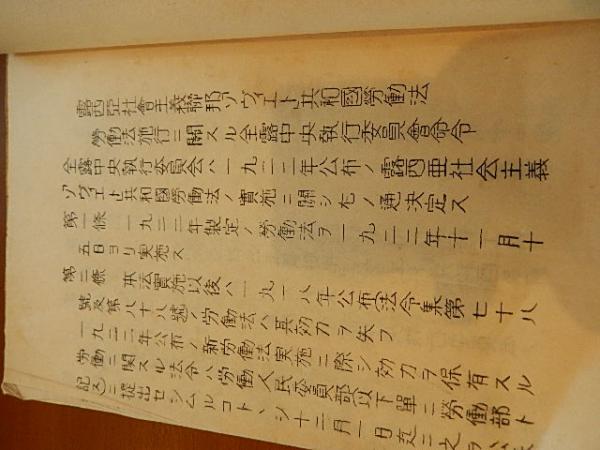 露西亞社會主義聯邦ソヴィエト共和國勞働法
勞働法施行ニ關スル全露中央執行委員會命令
全露中央執行委員会ハ一九二二年公布ノ露西亜社会主義
ソヴィエト共和國勞働法ノ實施ニ關シ左ノ通決定ス
第一條 一九二二年製定ノ勞働法ヲ一九二二年十一月十
五日ヨリ実施ス
第二條 本法實施以後ハ一九一八年公布法令集第七十八
號及第八十八號ノ労働法ハ其効力ヲ失フ
一九二二年公布ノ新労働法実施ニ際シ効力ヲ保有スル
労働ニ関スル法令ハ労働人民委員部以下單ニ労働部ト
記スニ提出セシムルコトヽシ十二月一日迄ニ之ヲ